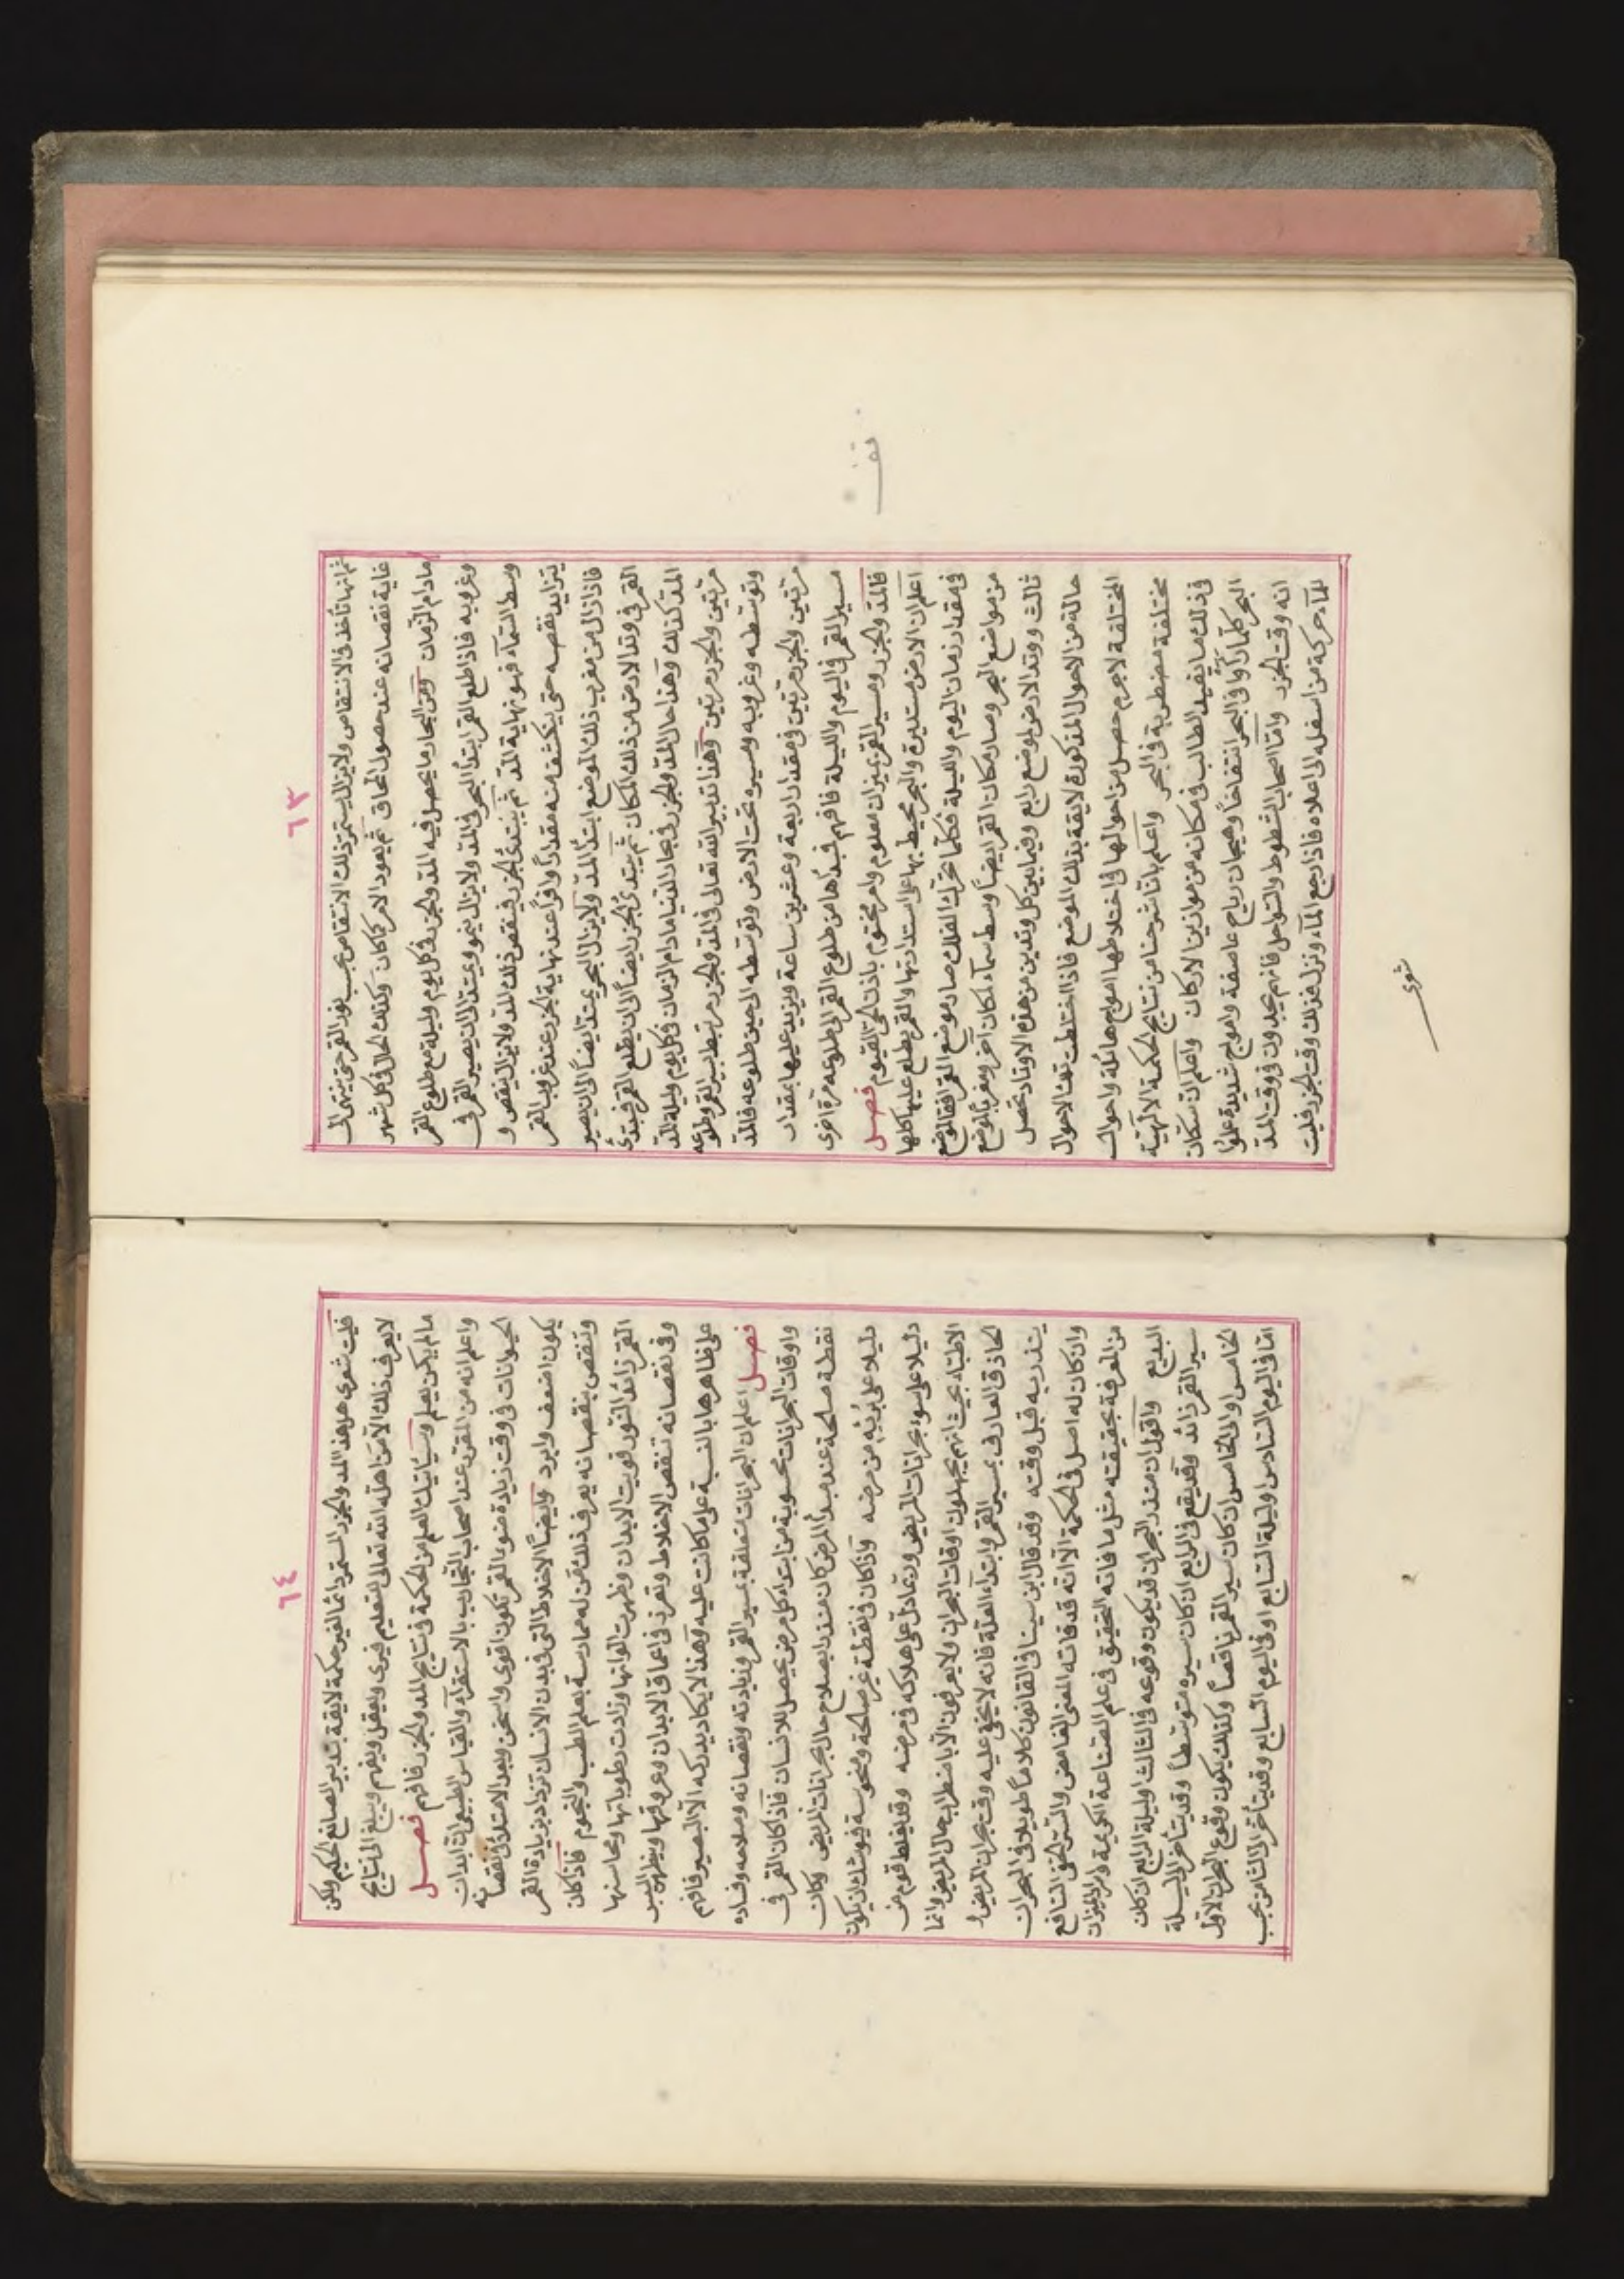 ٦٣
ثم انها تأخذ فى الانتقاص ولا يزال يستمر ذلك الانتقاص بحسب نور القمر حتى ينتهى الى
غاية نقصانه عند حصول المحاق ثم يعود الامر كما كان وكذلك الحال فى كل شهر
ما دام الزمان ومن البحار ما يحصل فيه المد والجزر فى كل يوم وليلة مع طلوع القمر
وغروبه فاذا طلع القمر ابتدأ البحر فى المد ولا يزال ينمو ويمتد الى ان يصير القمر فى
وسط السمآء فهو نهاية المد ثم يبتدئ الجزر فينقص ذلك المد ولا يزال ينقص و
يتزايد نقصه حتى ينكشف منه مقدارا وافرا عند نهاية الجزر عند غروب القمر
فاذا زال من مغرب ذلك الموضع ابتدأ المد ولا يزال البحر يمتد ايضاً الى ان يصير
القمر فى وتد الارض من ذلك المكان ثم يبتدئ الجزر ايضاً الى ان يطلع القمر فيبتدئ
المد كذلك وهذا حال المد والجزر فى بحار الدنيا ما دام الزمان فى كل يوم وليلة المد
مرتين والجزر مرتين وهذا تدبير الله تعالى فى المد والجزر مرتبط بسير القمر وطلوعه
وتوسطه وغروبه ومسيره تحت الارض وتوسطه الى حين طلوعه فالمد
مرتين والجزر مرتين فى مقدار اربعة وعشرين ساعة ويزيد عليها بمقدار
مسير القمر فى اليوم والليلة فافهم فمبدأها من طلوع القمر الى طلوعه مرة اخرى
فالمد والجزر ومسير القمر بميزان معلوم وامر محتوم باذن الحى القيوم فصل
اعلم ان الارض مستديرة والبحر محيط بها على استدارتها والقمر يطلع عليها كلها
فى مقدار زمان اليوم والليلة فكلما تحرك الفلك صار موضع القمر افقا لموضع
من مواضع البحر وصار مكان القمر ايضاً وسط سمآء لمكان آخر ومغرباً لموضع
ثالث ووتد الارض لموضع رابع وفيما بين كل وتدين من هذه الاوتاد تحصل
حالة من الاحوال المذكورة لايقة بذلك الموضع فاذا اختلطت تلك الاحوال
المختلفة لاجرم حصل من احوالها فى اختلاطها امواج هائلة واحوال
مختلفة مضطربة فى البحر واعلم باننا شرحنا من نتايج الحكمة الالهية
فى ذلك ما يفيد الطالب فى مكانه من موازين الاركان واعلم ان سكان
البحر كلما رأوا فى البحر انتفاخاً وهيجان رياح عاصفة وامواج شديدة علموا
انه وقت الجزر واما اصحاب الشطوط والسواحل فانهم يجدون فى وقت المد
للمآء حركة من اسفله الى اعلاه فاذا رجع المآء ونزل فذلك وقت الجزر فليت
شعرى
تقف
٦٤
فليت شعرى هل هذا المد والجزر المستمر دائما لغير حكمة لايقة بتدبير الصانع الحكيم ولكن
لا يعرف ذلك الا من اهله الله تعالى للتعليم فيرى ويعقل ويفهم ويبلغ الى نتايج
ما لم يكن يعلم وسيأتيك العلم من الحكمة فى نتايج المد والجزر فافهم فصل
واعلم انه من المقرر عند اصحاب التجارب بالاستقرآء والقياس الطبيعى ان ابدان
الحيوانات فى وقت زيادة ضوء القمر تكون اقوى واسخن وبعد الامتلاء ونقصانه
يكون اضعف وابرد وايضاً الاخلاط التى فى بدن الانسان تزداد بزيادة القمر
وتنقص بنقصانه يعرف ذلك من له ممارسة بعلم الطب والنجوم فاذا كان
القمر زائد النور قويت الابدان وظهرت الوانها وزادت رطوباتها ومحاسنها
وفى نقصانه تنقص الاخلاط وتغور فى اعماق الابدان وعروقها ويظهر اليبس
على ظاهرها بالنسبة على ما كانت عليه وهذا لا يكاد يدركه الا البصير فافهم
فصل اعلم ان البحرانات متعلقة بمسير القمر وزيادته ونقصانه وصلاحه وفساده
واوقات البحرانات محسوبة من ابتداء كل مرض يحصل للانسان فاذا كان القمر فى
نقطة صالحة عند مبدأ المرض كان منذر ابصلاح حال بحرانات المريض وكان
دليلا على برئه من مرضه واذا كان فى نقطة غير صالحة ومنحوسة فيوشك ان يكون
دليلا على سوء بحرانات المريض وربما دل على هلاكه فى مرضه وقد يغلط قوم من
الاطباء بحيث انهم يجهلون اوقات البحران ولا يعرفون الا باضطراب حال المريض وانما
الحاذق العارف بمسير القمر وابتداء العلة فانه لا يخفى عليه وقت بحران المريض و
ينذر به قبل وقته وقد قال ابن سينا فى القانون كلاماً طويلا فى البحران
وان كان له اصل فى الحكمة الا انه قد فاته المعنى الغامض والسر الخفى النافع
من المعرفة بحقيقته مثل ما فاته التحقيق فى علم الصناعة الكريمة وسر الميزان
البديع واقول ان منذر البحران قد يكون وقوعه فى الثالث او ليلة الرابع ان كان
سير القمر زائد وقد يقع فى الرابع ان كان سيره متوسطاً وقد يتأخر الى ليلة
الخامس او الى الخامس ان كان سير القمر ناقصاً وكذلك يكون وقوع البحران الاول
اما فى اليوم السادس او ليلة السابع او فى اليوم السابع وقد يتأخر الى الثامن بحسب